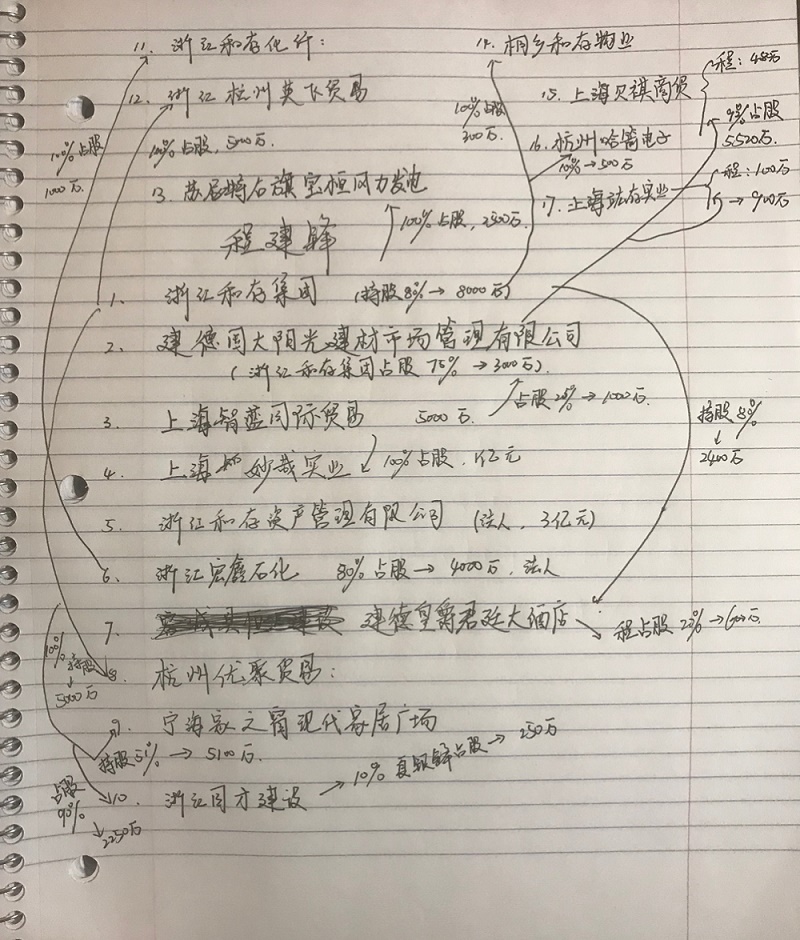 11. 浙江和存化纤:
14. 桐乡和存物业
程: 480万
12. 浙江杭州英飞贸易
15. 上海贝祺商贸
100%占股
300万.
92%占股
5520万.
100%占股
1000万.
100%占股, 5000万.
16. 杭州哈窝电子
10%→500万
13. 苏尼特右旗宝恒风力发电
17. 上海 实业
程: 100万
→900万
100%占股, 2500万.
程建锋
1. 浙江和存集团 (持股80%→8000万)
2. 建德国大阳光建材市场管理有限公司
(浙江和存集团占股75%→3000万).
3. 上海智蓝国际贸易 5000万.
占股25%→1000万.
持股80%
↓
2400万
4. 上海妙哉实业 100%占股. 1亿元
5. 浙江和存资产管理有限公司 (法人, 3亿元)
6. 浙江宏鑫石化 80%占股→4000万. 法人
7. 建德皇爵君廷大酒店
程占股20%→600万.
100%持股
↓
5000万
8. 杭州优聚贸易:
9. 宁海家之窝现代家居广场
持股51%→5100万.
→10% 占股→250万
占股
90%
↓2250万
10. 浙江同方建设